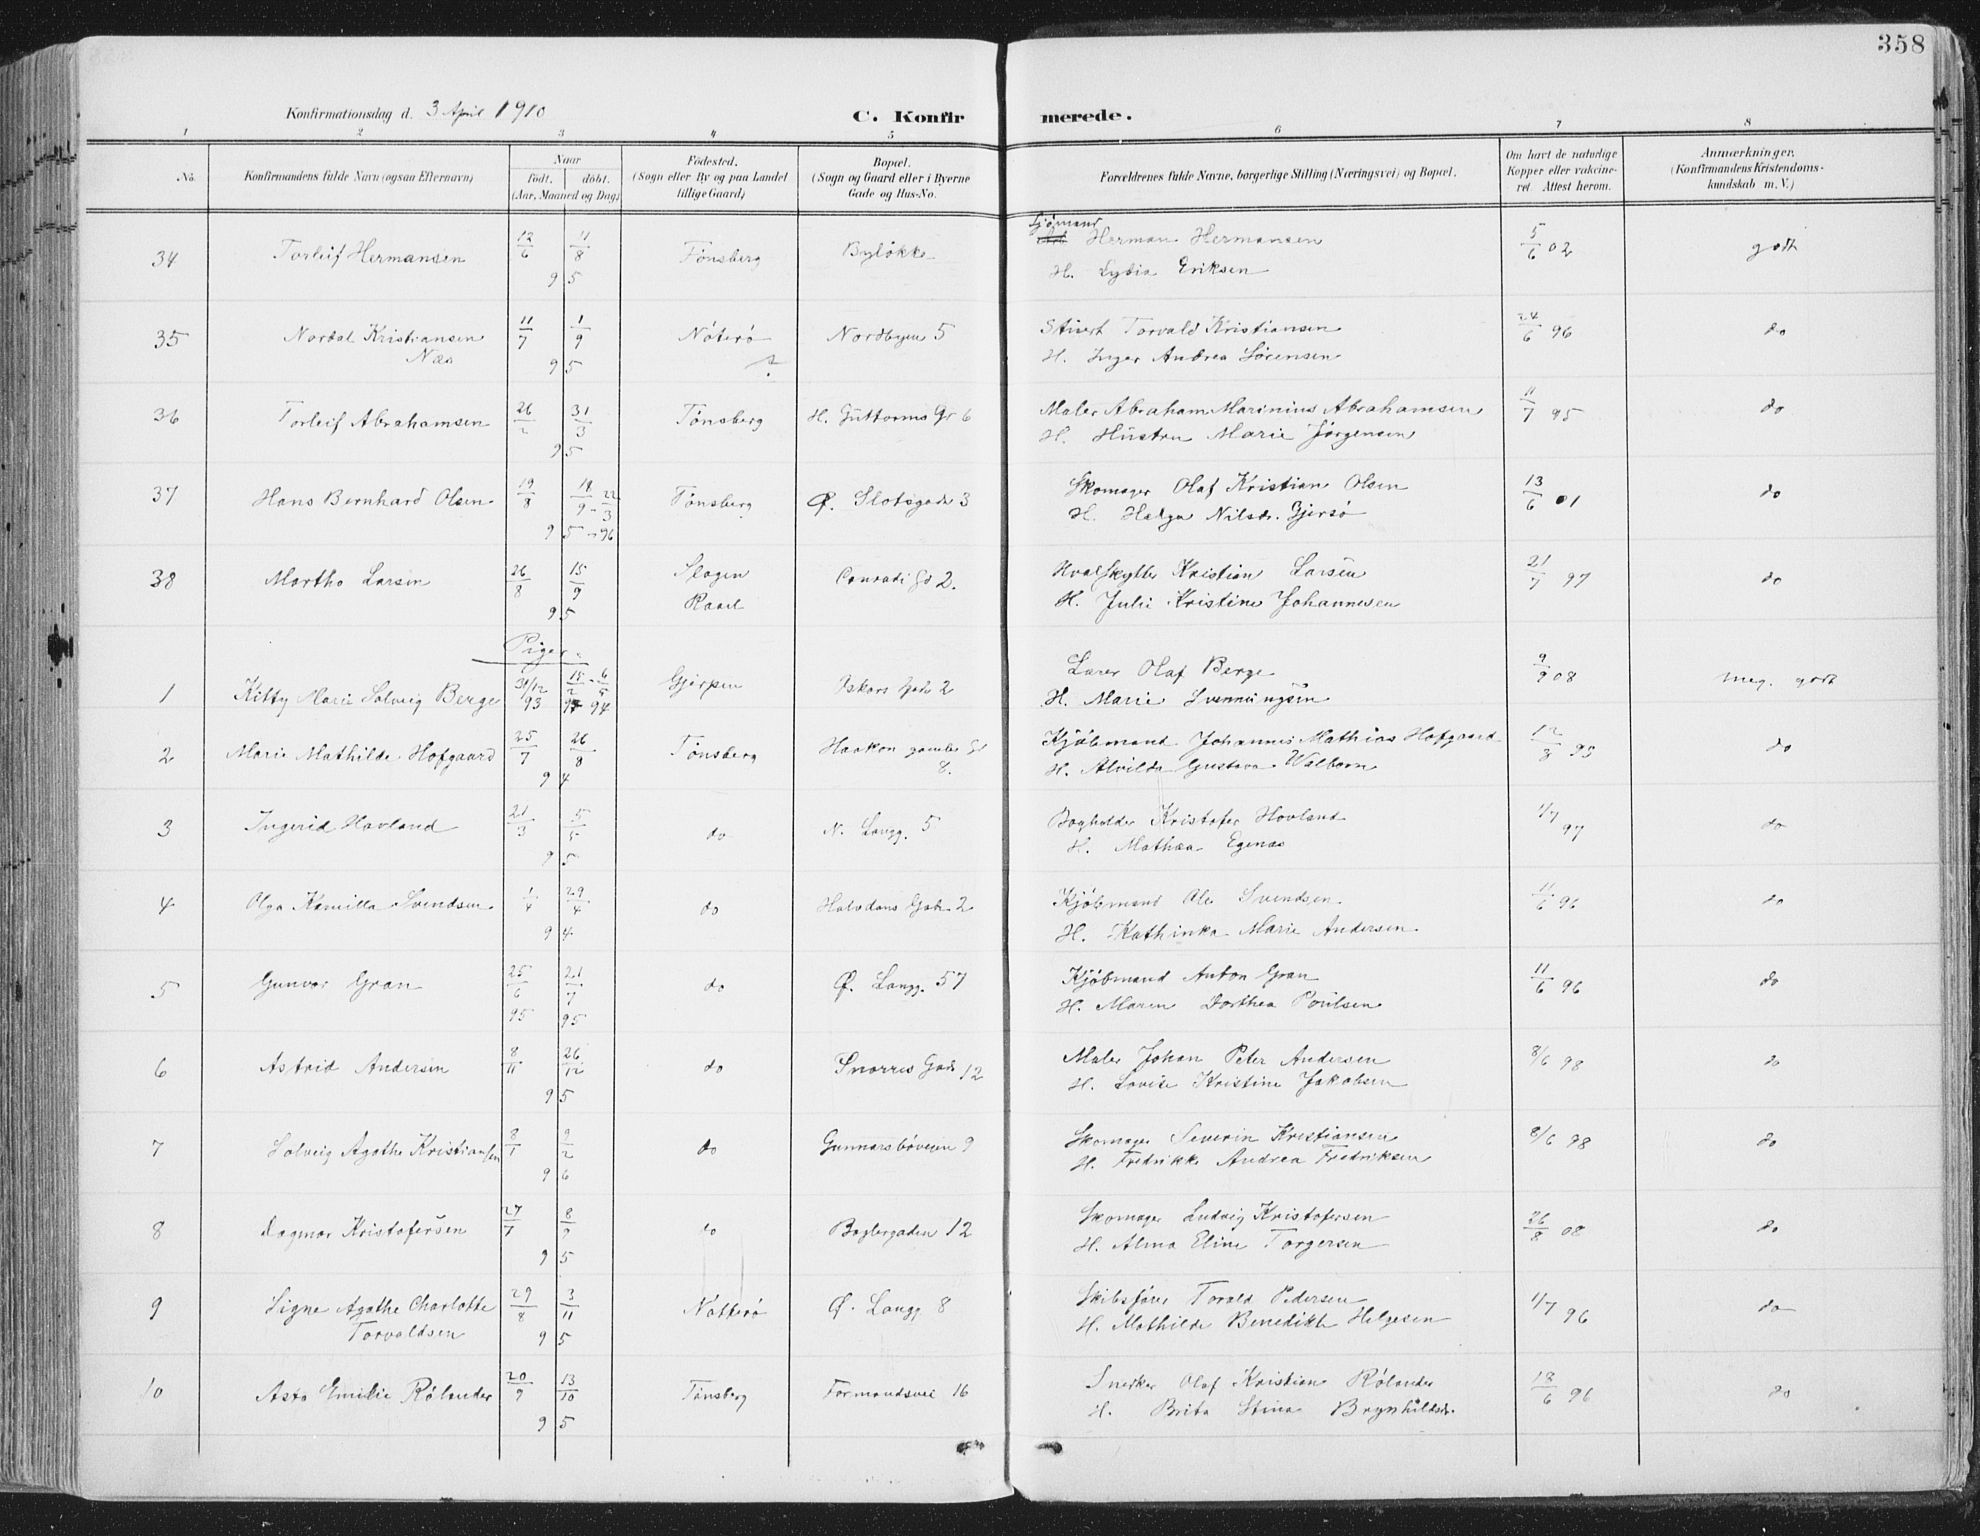 358
Konfirmationsdag d. 3 April 1910
C. Konfirmerede.
1 2 3 4 5 6 7 8
No.
Konfirmandens fulde Navn (ogsaa Efternavn)
Naar
født. døbt.
(Aar, Maaned og Dag)
Fødested.
(Sogn eller By og paa Landet
tillige Gaard)
Bopæl.
(Sogn og Gaard eller i Byerne
Gade og Hus-No.
Forældrenes fulde Navne, borgerlige Stilling (Næringsvei) og Bopæl.
Om havt de naturlige
Kopper eller vakcine-
ret. Attest herom.
Anmærkninger.
(Konfirmandens Kristendoms-
kundskab m. V.)
34 Torleif Hermansen 12/6 11/8 95 Tönsberg Byløkke Sjömand Herman Hermansen 5/6 02 godt
H. Lydia Eriksen
35 Nordal Kristiansen 11/7 1/9 95 Nöterö Nordbyen 5 Stuert Torvald Kristiansen 24/6 96 do
Næs ? H. Inger Andrea Sörensen
36 Torleif Abrahamsen 26/2 31/3 95 Tönsberg H. Guttorms Gd 6 Maler Abraham Marinius Abrahamsen 11/7 95 do
H. Hustru Marie Jörgensen
37 Hans Bernhard Olsen 19/8 18/9 - 22/3 95 - 96 Tönsberg Ø. Slotsgade 3 Skomager Olaf Kristian Olsen 13/6 01 do
H. Helga Nilsdr. Gjersö
38 Martho Larsen 26/8 15/9 95 Slagen Conradi Gd 2. Hvalskytter Kristian Larsen 21/7 97 do
Raael H. Julie Kristine Johannesen
Piger.
1 Kitty Marie Solveig Berge 31/12 93 15/2 - 6/5 94 Gjerpen Oskars Gade 2 Lærer Olaf Berge 9/9 08 meg. godt
H. Marie Svenningsen
2 Marie Mathilde Hofgaard 25/7 26/8 94 Tönsberg Haakon gamles Gd 8. Kjöbmand Johannes Mathias Hofgaard 12/8 95 do
H. Alvilda Gustava Walborn
3 Ingerid Hovland 21/3 5/5 95 do N. Langg. 5 Bogholder Kristofer Hovland 1/7 97 do
H. Mathea Egenæs
4 Olga Kamilla Svendsen 1/4 29/4 94 do Halvdans Gade 2 Kjöbmand Ole Svendsen 11/6 96 do
H. Kathinka Marie Andersen
5 Gunvor Gran 25/6 95 21/7 95 do Ø. Langg. 57 Kjöbmand Anton Gran 11/6 96 do
H. Maren Dorthea Poulsen
6 Astrid Andersen 8/11 26/12 95 do Snorres Gade 12 Maler Johan Peter Andersen 8/6 98 do
H. Lovise Kristine Jakobsen
7 Solveig Agathe Kristiansen 8/1 9/2 96 do Gunnarsbøveien 9 Skomager Severin Kristiansen 8/6 98 do
H. Fredrikke Andrea Fredriksen
8 Dagmar Kristofersen 27/7 8/9 95 do Baglergaden 12 Skomager Ludvig Kristofersen 26/8 08 do
H. Alma Eline Torgersen
9 Signe Agathe Charlotte 29/8 3/11 95 Nötterö Ø. Langg 8 Skibsförer Torald Pedersen 1/7 96 do
Torvaldsen H. Mathilde Benedikte Helgesen
10 Asta Emilie Rölander 20/9 13/10 95 Tönsberg Formandsvei 16 Snekker Olaf Kristian Rölander 18/6 96 do
H. Brita Stina Brynhildsdr.